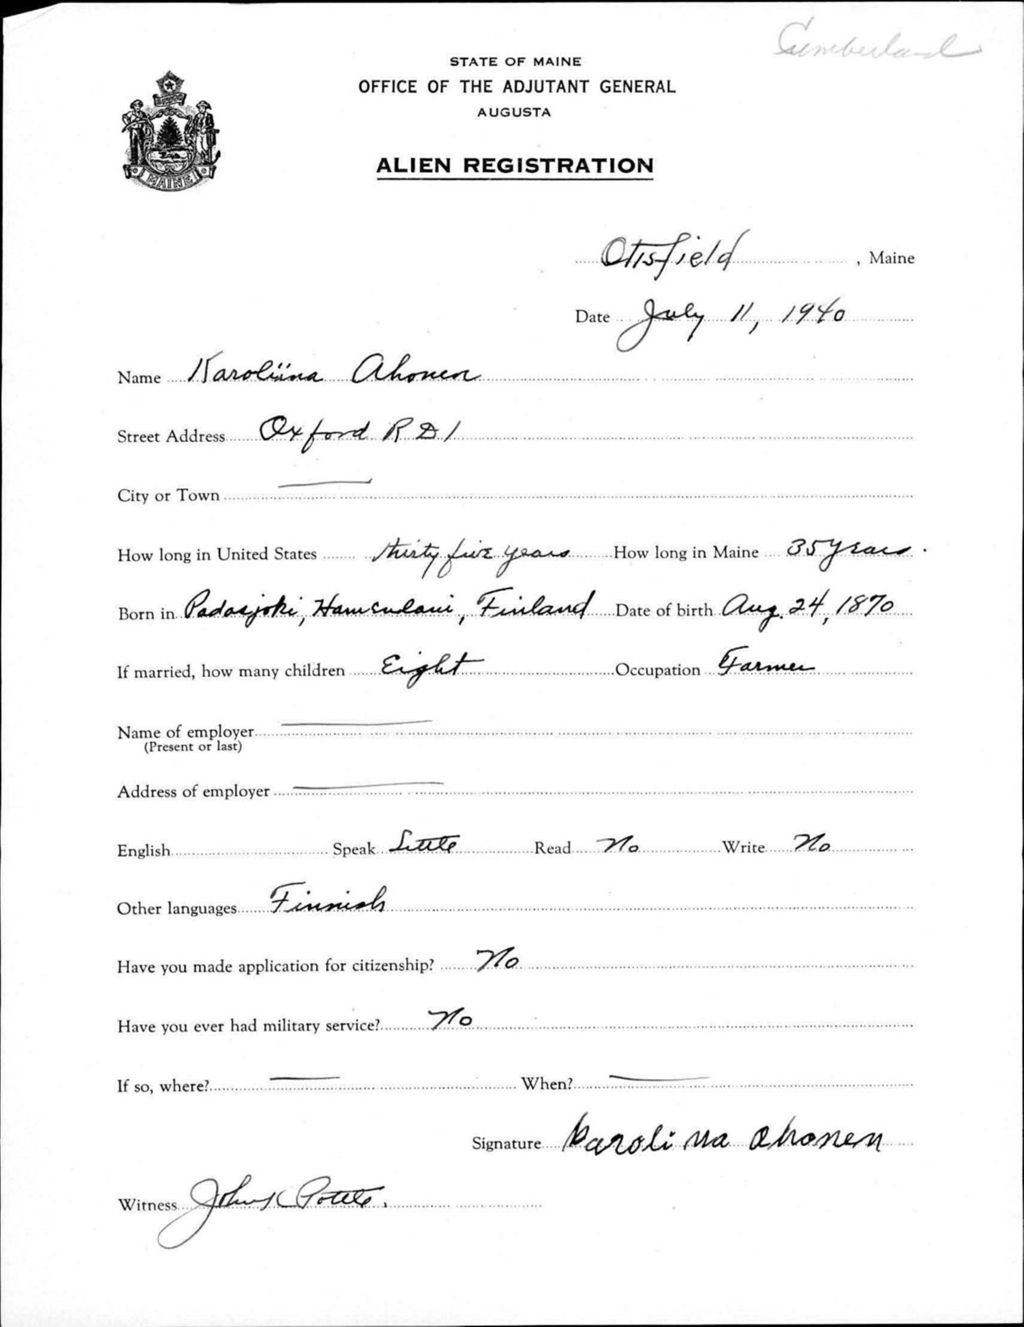 Cumberland
STATE OF MAINE
OFFICE OF THE ADJUTANT GENERAL
AUGUSTA
MAINE
ALIEN REGISTRATION
Otisfield, Maine
Date July 11, 1940
Name Karoliina Ahonen
Street Address Oxford R D 1
City or Town —
How long in United States thirty five years How long in Maine 35 years.
Born in Padasjoki, Finland Date of birth Aug. 24, 1870
If married, how many children Eight Occupation Farmer
Name of employer —
(Present or last)
Address of employer —
English Speak Little Read No Write No
Other languages Finnish
Have you made application for citizenship? No
Have you ever had military service? No
If so, where? — When? —
Signature Karoliina Ahonen
Witness John K Pottle.